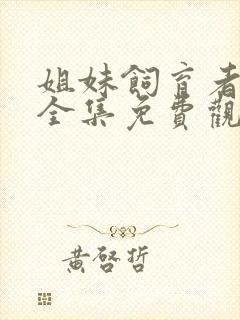 姐妹飼育者
全集免費觀
黃啓哲